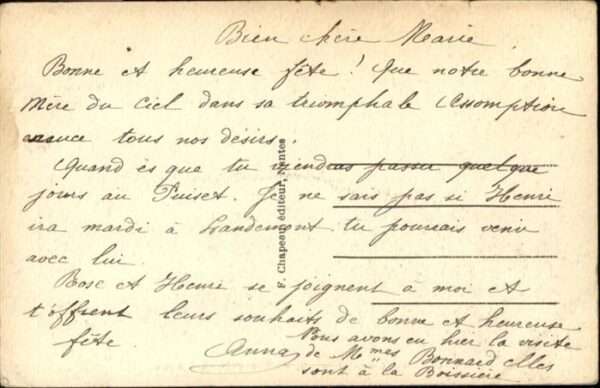 Bien chère Marie
Bonne et heureuse fête ! Que notre bonne
Mère du Ciel dans sa triomphale Assomption
exauce tous nos désirs.
Quand es que tu viendras passer quelque
jours au Puiset. Je ne sais pas si Henri
ira mardi à Landemont tu pourrais venir
avec lui.
Bosc et Henri se joignent à moi et
t'offrent leurs souhaits de bonne et heureuse
fête.
Anna
Nous avons eu hier la visite
de Mmes Bonnard elles
sont à la Boissière
F. Chapeau éditeur, Nantes